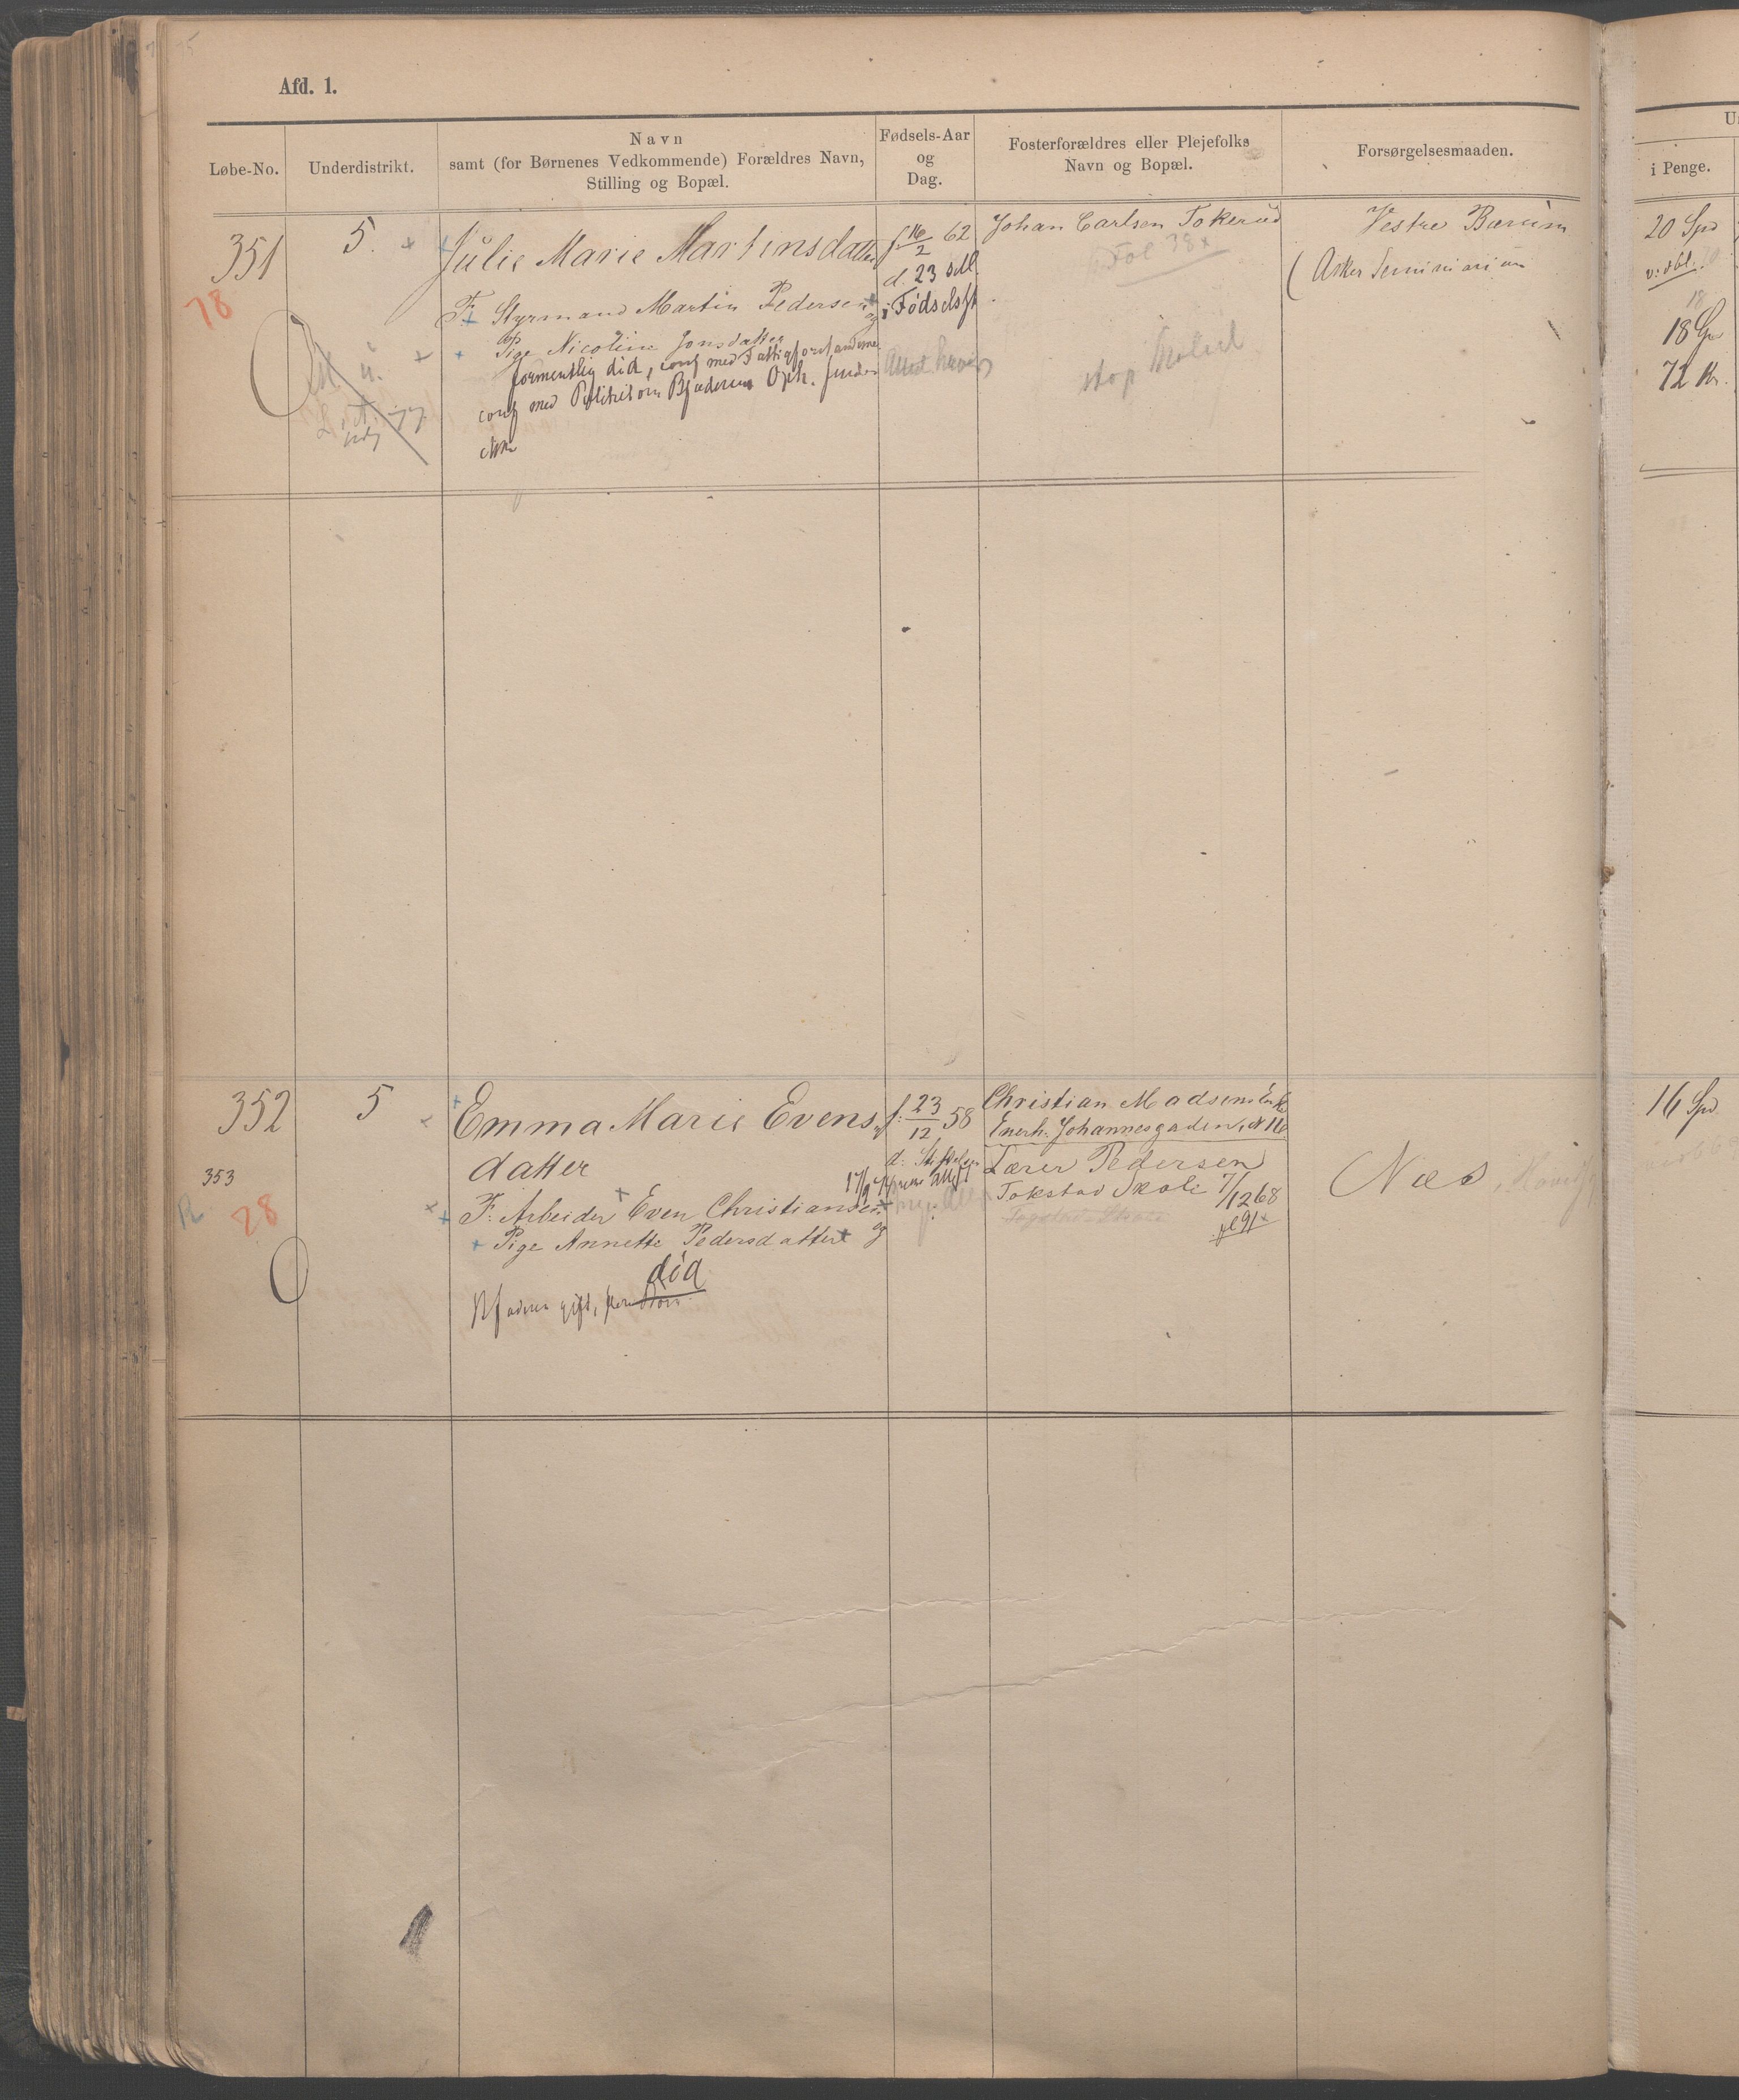 Afd. 1.
Løbe-No.
Underdistrikt.
Navn
samt (for Børnenes Vedkommende) Forældres Navn,
Stilling og Bopæl.
Fødsels-Aar
og
Dag.
Fosterforældres eller Plejefolks
Navn og Bopæl.
Forsørgelsesmaaden.
i Penge.
351
78
5.
Julie Marie Martinsdatter
F: Styrmand Martin Pedersen og
Pige Nicoline Jonsdatter
formentlig død, conf med Fattigforstanderne
conf med Politiet om Bfaderens Oph.
f. 16/2 62
d. 23
i Fødselsst.
Johan Carlsen Tokerud
Fol 38 x
stop
Vestre Bærum
(Asker Seminarium
20 Spd
18
18 Sp
72 Kr.
352
353
28
5
Emma Marie Evens
datter
F: Arbeider Even Christiansen og
Pige Annette Pedersdatter
død
Bfaderen gift, flere Børn
f. 23/12 58
d: Stiftelsen
17/9
Christian Madsens Enke
Enerh. Johannesgaden, N 16.
Lærer Pedersen
Tokstad Skole 7/12 68
Næs
16 Spd